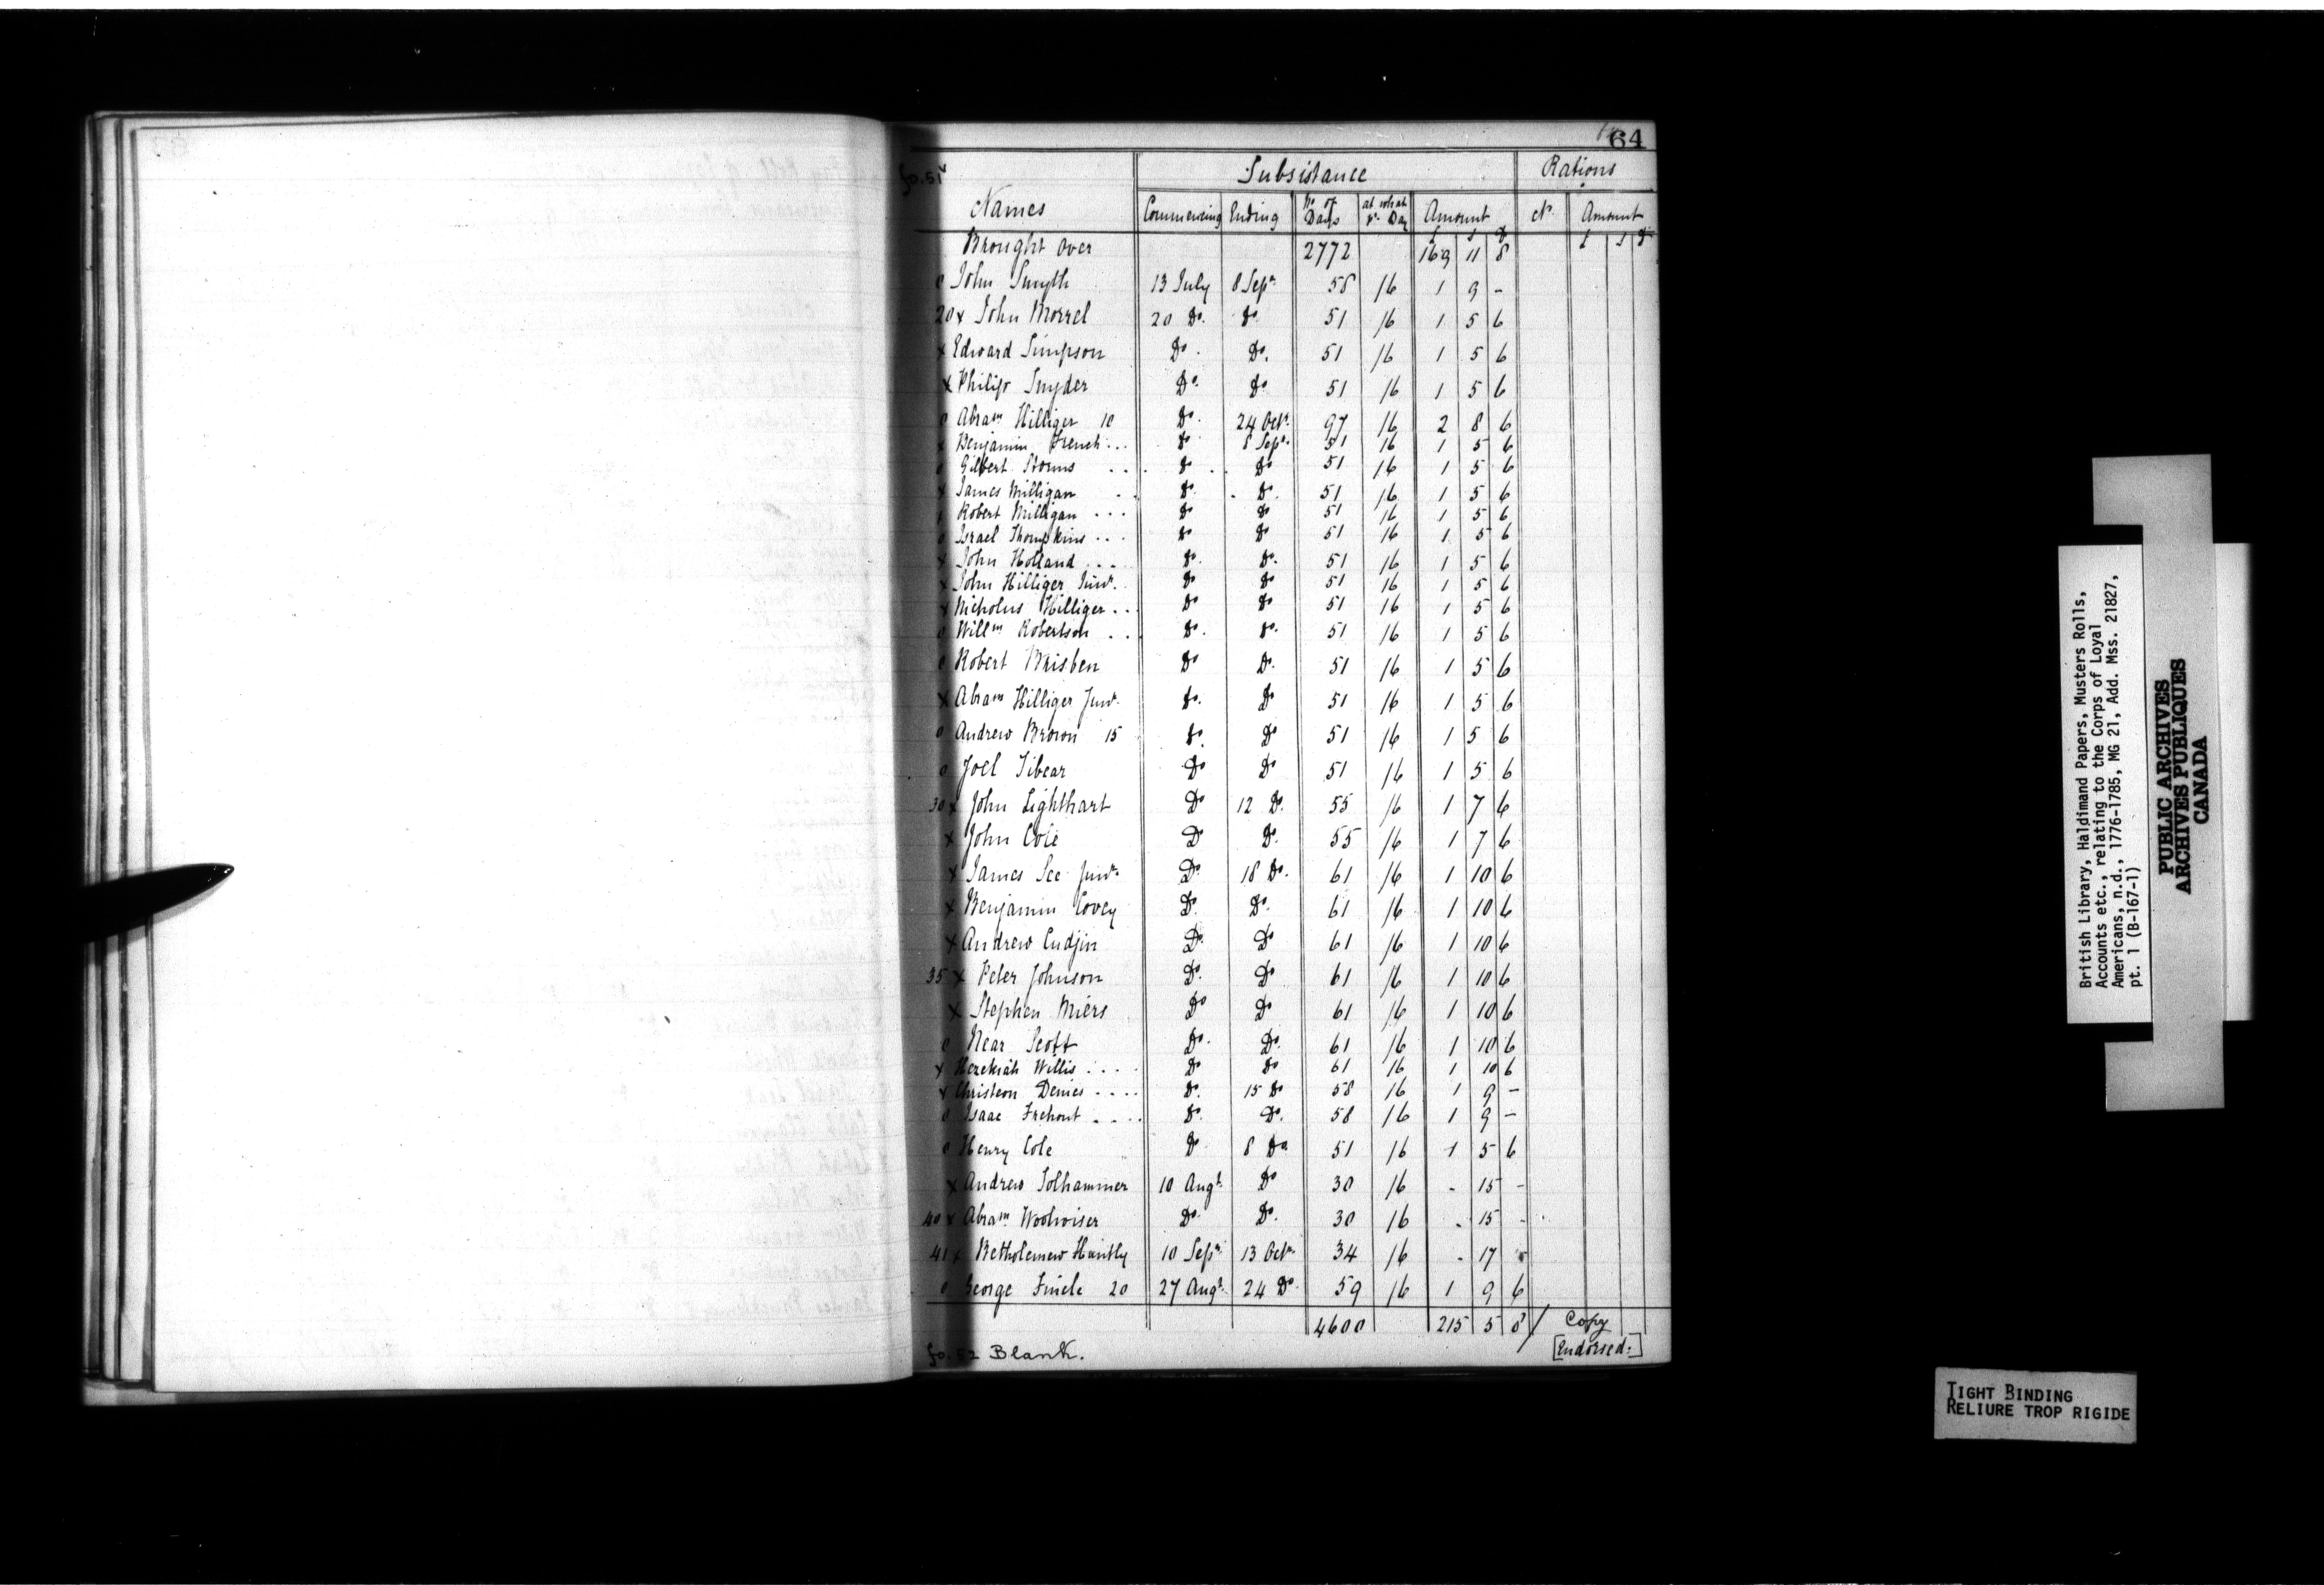 64
fo. 51v
Subsistance Rations
Names Commencing Ending No of Days at what pr. Day Amount No. Amount
£ s d £ s d
Brought Over 2772 169 11 8
0 John Smyth 13 July 8 Sepr. 58 /6 1 9 -
20 x John Morrel 20 Do. Do. 51 /6 1 5 6
x Edward Simpson Do. Do. 51 /6 1 5 6
x Philip Snyder Do. Do. 51 /6 1 5 6
0 Abram Hilliger 10 Do. 24 Octr. 97 /6 2 8 6
x Benjamin French Do 8 Sepr. 51 /6 1 5 6
0 Gilbert Storms Do Do 51 /6 1 5 6
x James Milligan Do. Do. 51 /6 1 5 6
Robert Milligan Do Do 51 /6 1 5 6
0 Israel Thompkins Do Do 51 /6 1 5 6
x John Holland Do. Do. 51 /6 1 5 6
x John Hilliger Junr. Do Do 51 /6 1 5 6
x Nicholus Hilliger Do Do 51 /6 1 5 6
0 Willm Robertson Do. Do. 51 /6 1 5 6
0 Robert Brisben Do Do. 51 /6 1 5 6
x Abram Hilliger Junr. Do. Do 51 /6 1 5 6
0 Andrew Brown 15 Do. Do 51 /6 1 5 6
0 Joel Tibear Do Do 51 /6 1 5 6
30 x John Lighthart Do 12 Do. 55 /6 1 7 6
x John Cole Do Do. 55 /6 1 7 6
x James See Junr. Do. 18 Do. 61 /6 1 10 6
x Benjamin Covey Do. Do. 61 /6 1 10 6
x Andrew Cudjin Do. Do 61 /6 1 10 6
35 x Peter Johnson Do. Do 61 /6 1 10 6
x Stephen Miers Do Do 61 /6 1 10 6
0 Near Scott Do. Do. 61 /6 1 10 6
x Hezekiah Willis Do Do 61 /6 1 10 6
x Christeon Denies Do. 15 Do 58 /6 1 9 -
0 Isaac Frehout Do. Do. 58 /6 1 9 -
0 Henry Cole Do. 8 Do. 51 /6 1 5 6
x Andrew Tolhammer 10 Augt. Do 30 /6 - 15 -
40 x Abram Woolwiser Do. Do. 30 /6 - 15 -
41 x Betholemew Huntly 10 Sepr. 13 Octr. 34 /6 - 17
0 George Finele 20 27 Augt. 24 Do. 59 /6 1 9 6
4600 215 5 8 / Copy
fo. 52 Blank. [Endorsed:]
British Library, Haldimand Papers, Musters Rolls,
Accounts etc., relating to the Corps of Loyal
Americans, n.d., 1776-1785, MG 21, Add. Mss. 21827,
pt. 1 (B-167-1)
PUBLIC ARCHIVES
ARCHIVES PUBLIQUES
CANADA
TIGHT BINDING
RELIURE TROP RIGIDE